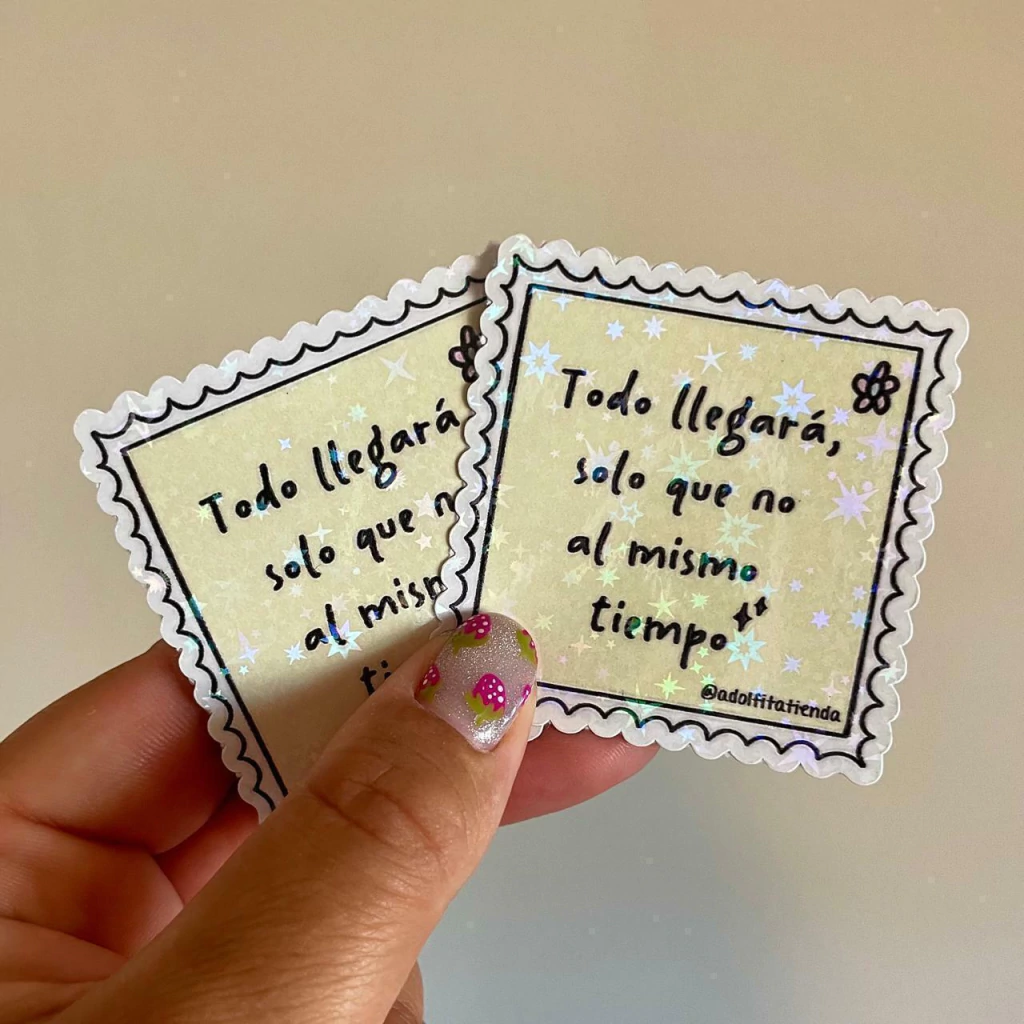 Todo llegará
solo que n
al mism
ti
Todo llegará,
solo que no
al mismo
tiempo
@adolfitatienda